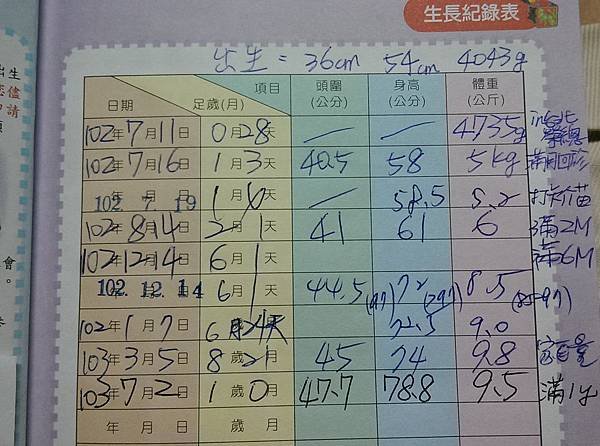 生長紀錄表
出生
請
出生 = 36cm 54cm 4043g
項目 頭圍 身高 體重
日期 足歲(月) (公分) (公分) (公斤)
102年7月11日 0月28天 — — 4735g
102年7月16日 1月3天 40.5 58 5kg 滿月回診
102 7 19 1月6天 — 58.5 5.2 打
102年8月14日 2月1天 41 61 6 滿2M
102年12月14日 6月1天 滿6M
102. 12. 14 6月1天 44.5 (97) 72 (>97) 8.5 (85-97)
102年1月7日 6月24天 72.5 9.0
103年3月5日 8歲21月 45 74 9.8 量
103年7月2日 1歲0月 47.7 78.8 9.5 滿1y
年 月 日 歲 月
年 月 日 歲 月